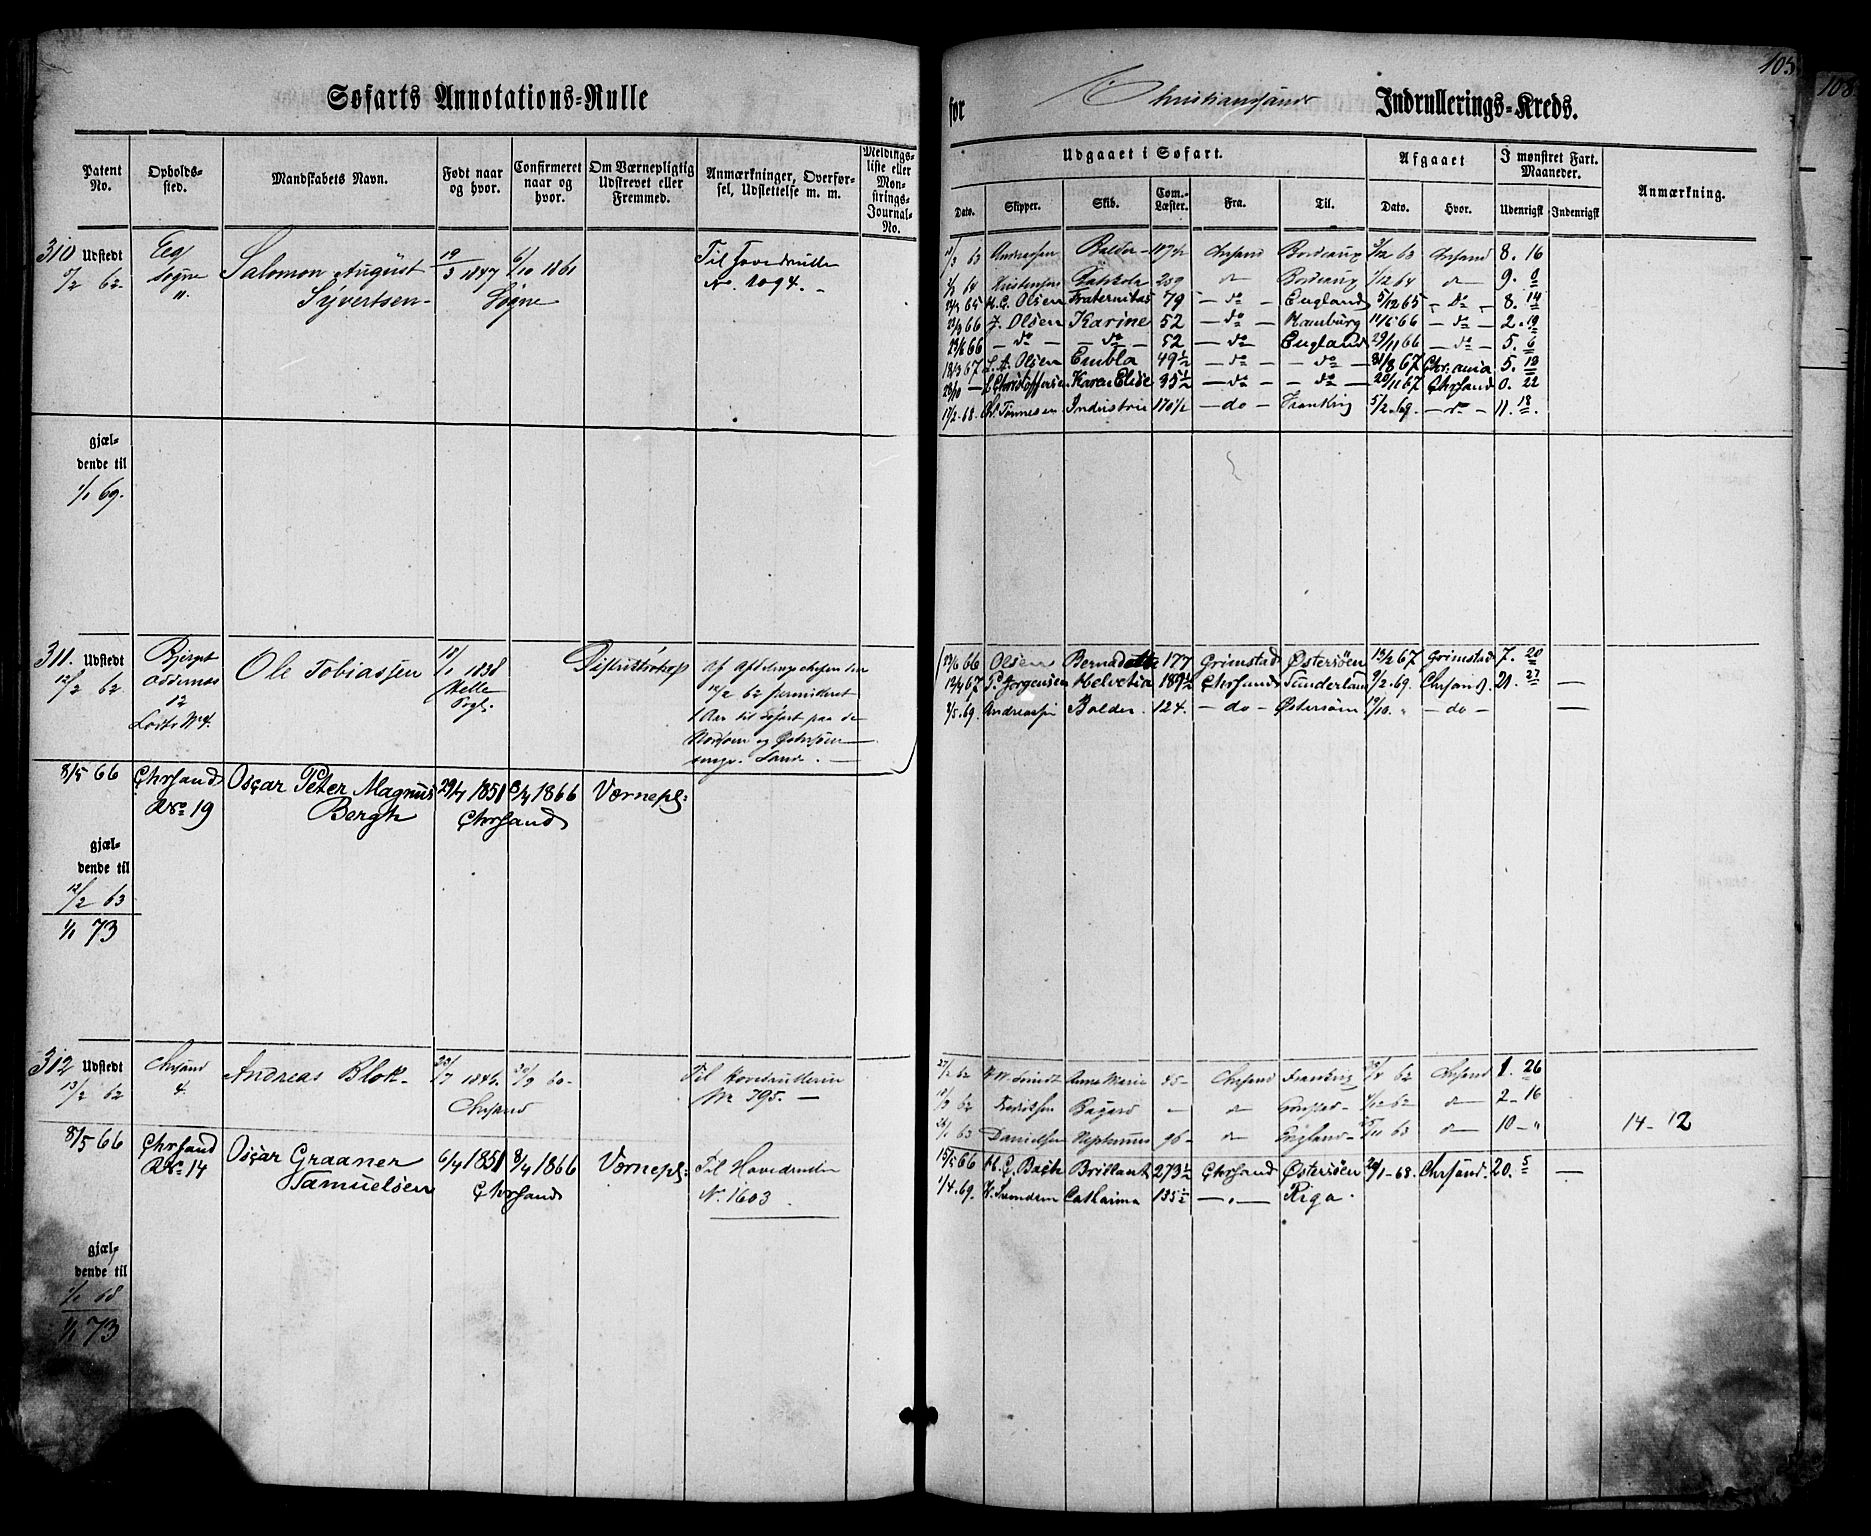 105
108
Søfarts Annotations=Rulle
for Christiansands Indrullerings=Kreds.
Patent No.
Opholds-sted.
Mandskabets Navn.
Født naar og hvor.
Confirmeret naar og hvor.
Om Værnepligtig Udskrevet eller Fremmed.
Anmærkninger, Overførsel, Udslettelse m. m.
Meldings-liste eller Mønstrings-Journal-No.
Udgaaet i Søfart.
Afgaaet
I mønstret Fart. Maaneder.
Anmærkning.
Dato.
Skipper.
Skib.
Com.-Læster.
Fra.
Til.
Dato.
Hvor.
Udenrigst
Indenrigst
310 Udstedt
7/2 62
Eeg
Søgne
"
Salomon August
Syvertsen
19/3 1847
6/10 1861
Søgne
Til Hovedrulle
No. 1094.
gjæl-
dende til
1/1 69.
63 Andreasen Balder Chrsand Bordeaux 3/12 63 Chrsand 8. 16
64 209 do Bordeaux 1/12 64 do 9.
65 H. C. Olsen Fraternitas 79 - do - England 5/12 65 - do - 8. 14
23/3 66 J. Olsen Karine 52 - do - Hamburg 11/6 66 - do - 2. 19
23/6 66 - do - - do - 52 - do - England 29/11 66 - do - 5. 6
18/3 67 L. A. Olsen Embla 49 1/2 - do - - do - 31/8 67 Chr.ania 5. 13
28/10 - L Christoffersen Karen Elise 35 1/2 - do - - do - 20/11 67 Chrsand 0. 22
17/2 68. Tønnesen Industrie 170 1/2 - do - Frankrig 5/2 69. - do - 11. 18
311. Udstedt
12/2 62
Bjerget
Oddernæs
12
Ole Tobiassen
10/1 1838
Helle
Sogl.
Af Afdelingschefen den
12/2 62 permitteret
1 Aar til Søfart paa de
Nordsøen og Østersøen
Lande.
8/5 66
Chrsand
No 19
Oscar Peter Magnus
Bergh
29/7 1851
8/4 1866
Chrsand
Værnepl:
gjæl-
dende til
12/2 63
1/1 73
13/6 66 Olsen Bernadotte 177 Grimstad Østersøen 13/2 67 Grimstad 7. 20
12/4 67 P. Jørgensen Helvetia 189 1/2 Chrsand Sunderland 9/2 69. Chrsand. 21. 27 —
3/5. 69. Andreassen Balder 124. - do - Østersøen 19/10. " - do - —
312 Udstedt
13/2 62
Chrsand
4.
Andreas Blok
23/7 1846
Chrsand
30/9 60
Til Hovedrullen
No 795. —
27/2 62 Anna Marie 45 - Chrsand Frankrig 62 Chrsand 1. 26
62 do 62 do 2 - 16
63 Danielsen Neptunus 96 - do England 63 do 10 - "
14 - 12
8/5 66
Chrsand
No 14
Oscar Graaner
Samuelsen
6/4 1851
8/4 1866
Chrsand
Værnepl:
Til Hovedrullen
N. 1603.
15/5 66 H. C. Bach Brillant 273 1/2 Chrsand Østersøen 24/1 - 68. Chrsand. 20. 5 —
1/4. 69. Catharina 135 1/2 — " — Riga.
gjæl-
dende til
1/1 68
1/1 73